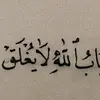 بَابُ ٱللّٰهِ لَا يُغْلَقُ